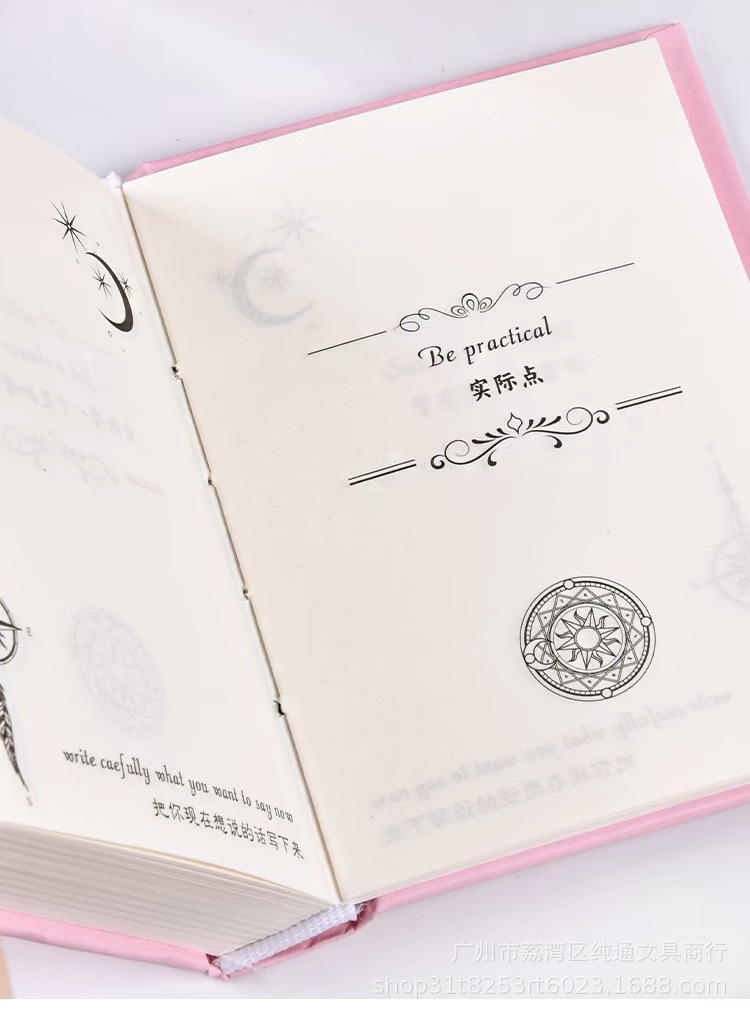 write caefully what you want to say now
把你现在想说的话写下来
Be practical
实际点
广州市荔湾区纯通文具商行
shop31t8253rt6023.1688.com